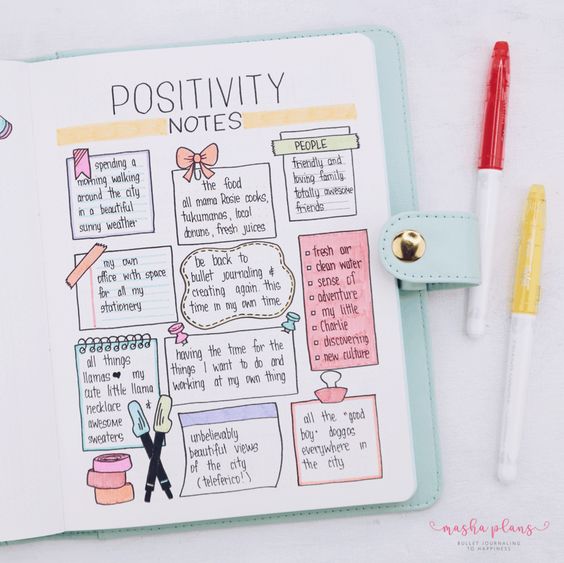 POSITIVITY
NOTES
spending a
morning walking
around the city
in a beautiful
sunny weather
the food
all mama Rosie cooks,
tukumanas, local
donuns, fresh juices
PEOPLE
friendly and
loving family
totally awesome
friends
my own
office with space
for all my
stationery
be back to
bullet journaling &
creating again this
time in my own time.
fresh air
clean water
sense of
adventure
my little
Charlie
discovering
new culture
all things
llamas ♥ my
cute little llama
necklace &
awesome
sweaters
having the time for the
things I want to do and
working at my own thing
unbelievably
beautiful views
of the city
(teleferico!)
all the "good
boy" doggos
everywhere in
the city
masha plans
BULLET JOURNALING
TO HAPPINESS